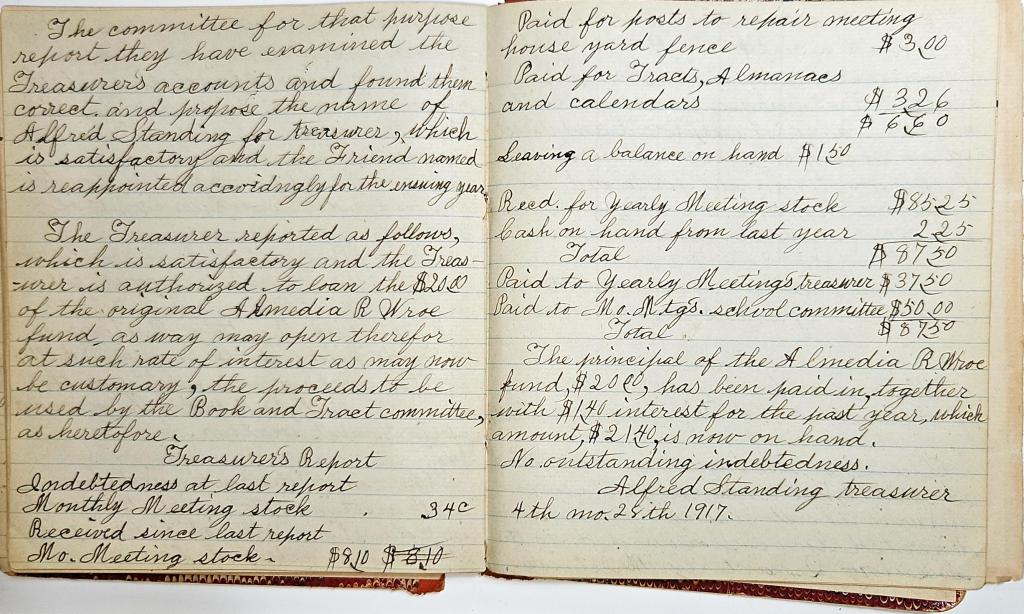 The committee for that purpose
report they have examined the
Treasurers accounts and found them
correct. and propose the name of
Alfred Standing for treasurer, which
is satisfactory and the Friend named
is reappointed accordngly for the ensuing year.
The Treasurer reported as follows,
which is satisfactory and the Treas-
-urer is authorized to loan the $20.00
of the original Almedia R Wroe
fund, as way may open therefor
at such rate of interest as may now
be customary, the proceeds to be
used by the Book and Tract committee,
as heretofore.
Treasurer's Report
Indebtedness at last report
Monthly Meeting stock . 34c
Received since last report
Mo. Meeting stock - $8.10 $8.10
Paid for posts to repair meeting
house yard fence $3.00
Paid for Tracts, Almanacs
and calendars $3.26
$6.60
Leaving a balance on hand $1.50
Recd. for Yearly Meeting stock $85.25
Cash on hand from last year 2.25
Total $87.50
Paid to Yearly Meeting's treasurer $37.50
Paid to Mo. Mtgs. school committee $50.00
Total $87.50
The principal of the Almedia R. Wroe
fund, $20.00, has been paid in, together
with $1.40 interest for the past year, which
amount, $21.40, is now on hand.
No outstanding indebtedness.
Alfred Standing treasurer
4th mo. 28th 1917.